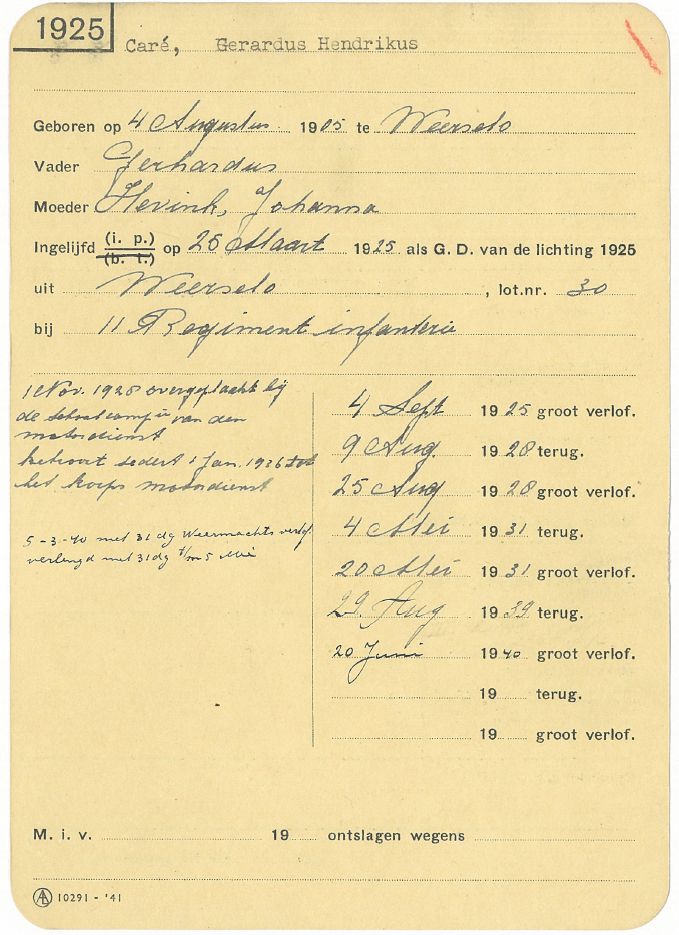 1925
Caré, Gerardus Hendrikus
Geboren op 4 Augustus 1905 te Weerselo
Vader Gerhardus
Moeder Hevink, Johanna
Ingelijfd (i. p.) (b. t.) op 25 Maart 1925 als G. D. van de lichting 1925
uit Weerselo, lot.nr. 30
bij 11 Regiment infanterie
1 Nov. 1928 overgeplaatst bij
de Schoolcompie van den
motordienst
behoort sedert 1 Jan. 1936 tot
het korps motordienst
5-3-40 met 31 dg Weermachts verlof.
verlengd met 31 dg t/m 5 Mei
4 Sept 1925 groot verlof.
9 Aug. 1928 terug.
25 Aug 1928 groot verlof.
4 Mei 1931 terug.
20 Mei 1931 groot verlof.
29. Aug 1939 terug.
20 Juni 1940 groot verlof.
19 terug.
19 groot verlof.
M. i. v. 19 ontslagen wegens
10291 - '41